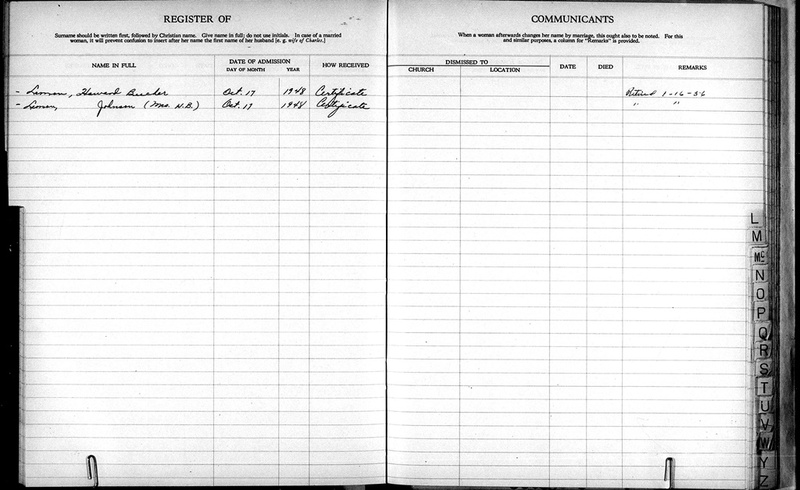 REGISTER OF
Surname should be written first, followed by Christian name. Give name in full; do not use initials. In case of a married
woman, it will prevent confusion to insert after her name the first name of her husband [e. g. wife of Charles.]
NAME IN FULL
DATE OF ADMISSION
DAY OF MONTH
YEAR
HOW RECEIVED
- Howard Oct. 17 1948 Certificate
- Johnson (Mrs. H.B.) Oct. 17 1948 Certificate
COMMUNICANTS
When a woman afterwards changes her name by marriage, this ought also to be noted. For this
and similar purposes, a column for "Remarks" is provided.
DISMISSED TO
CHURCH
LOCATION
DATE
DIED
REMARKS
1-16-56
" "
L
M
Mc
N
O
P
Q
R
S
T
U
V
W
Y
Z